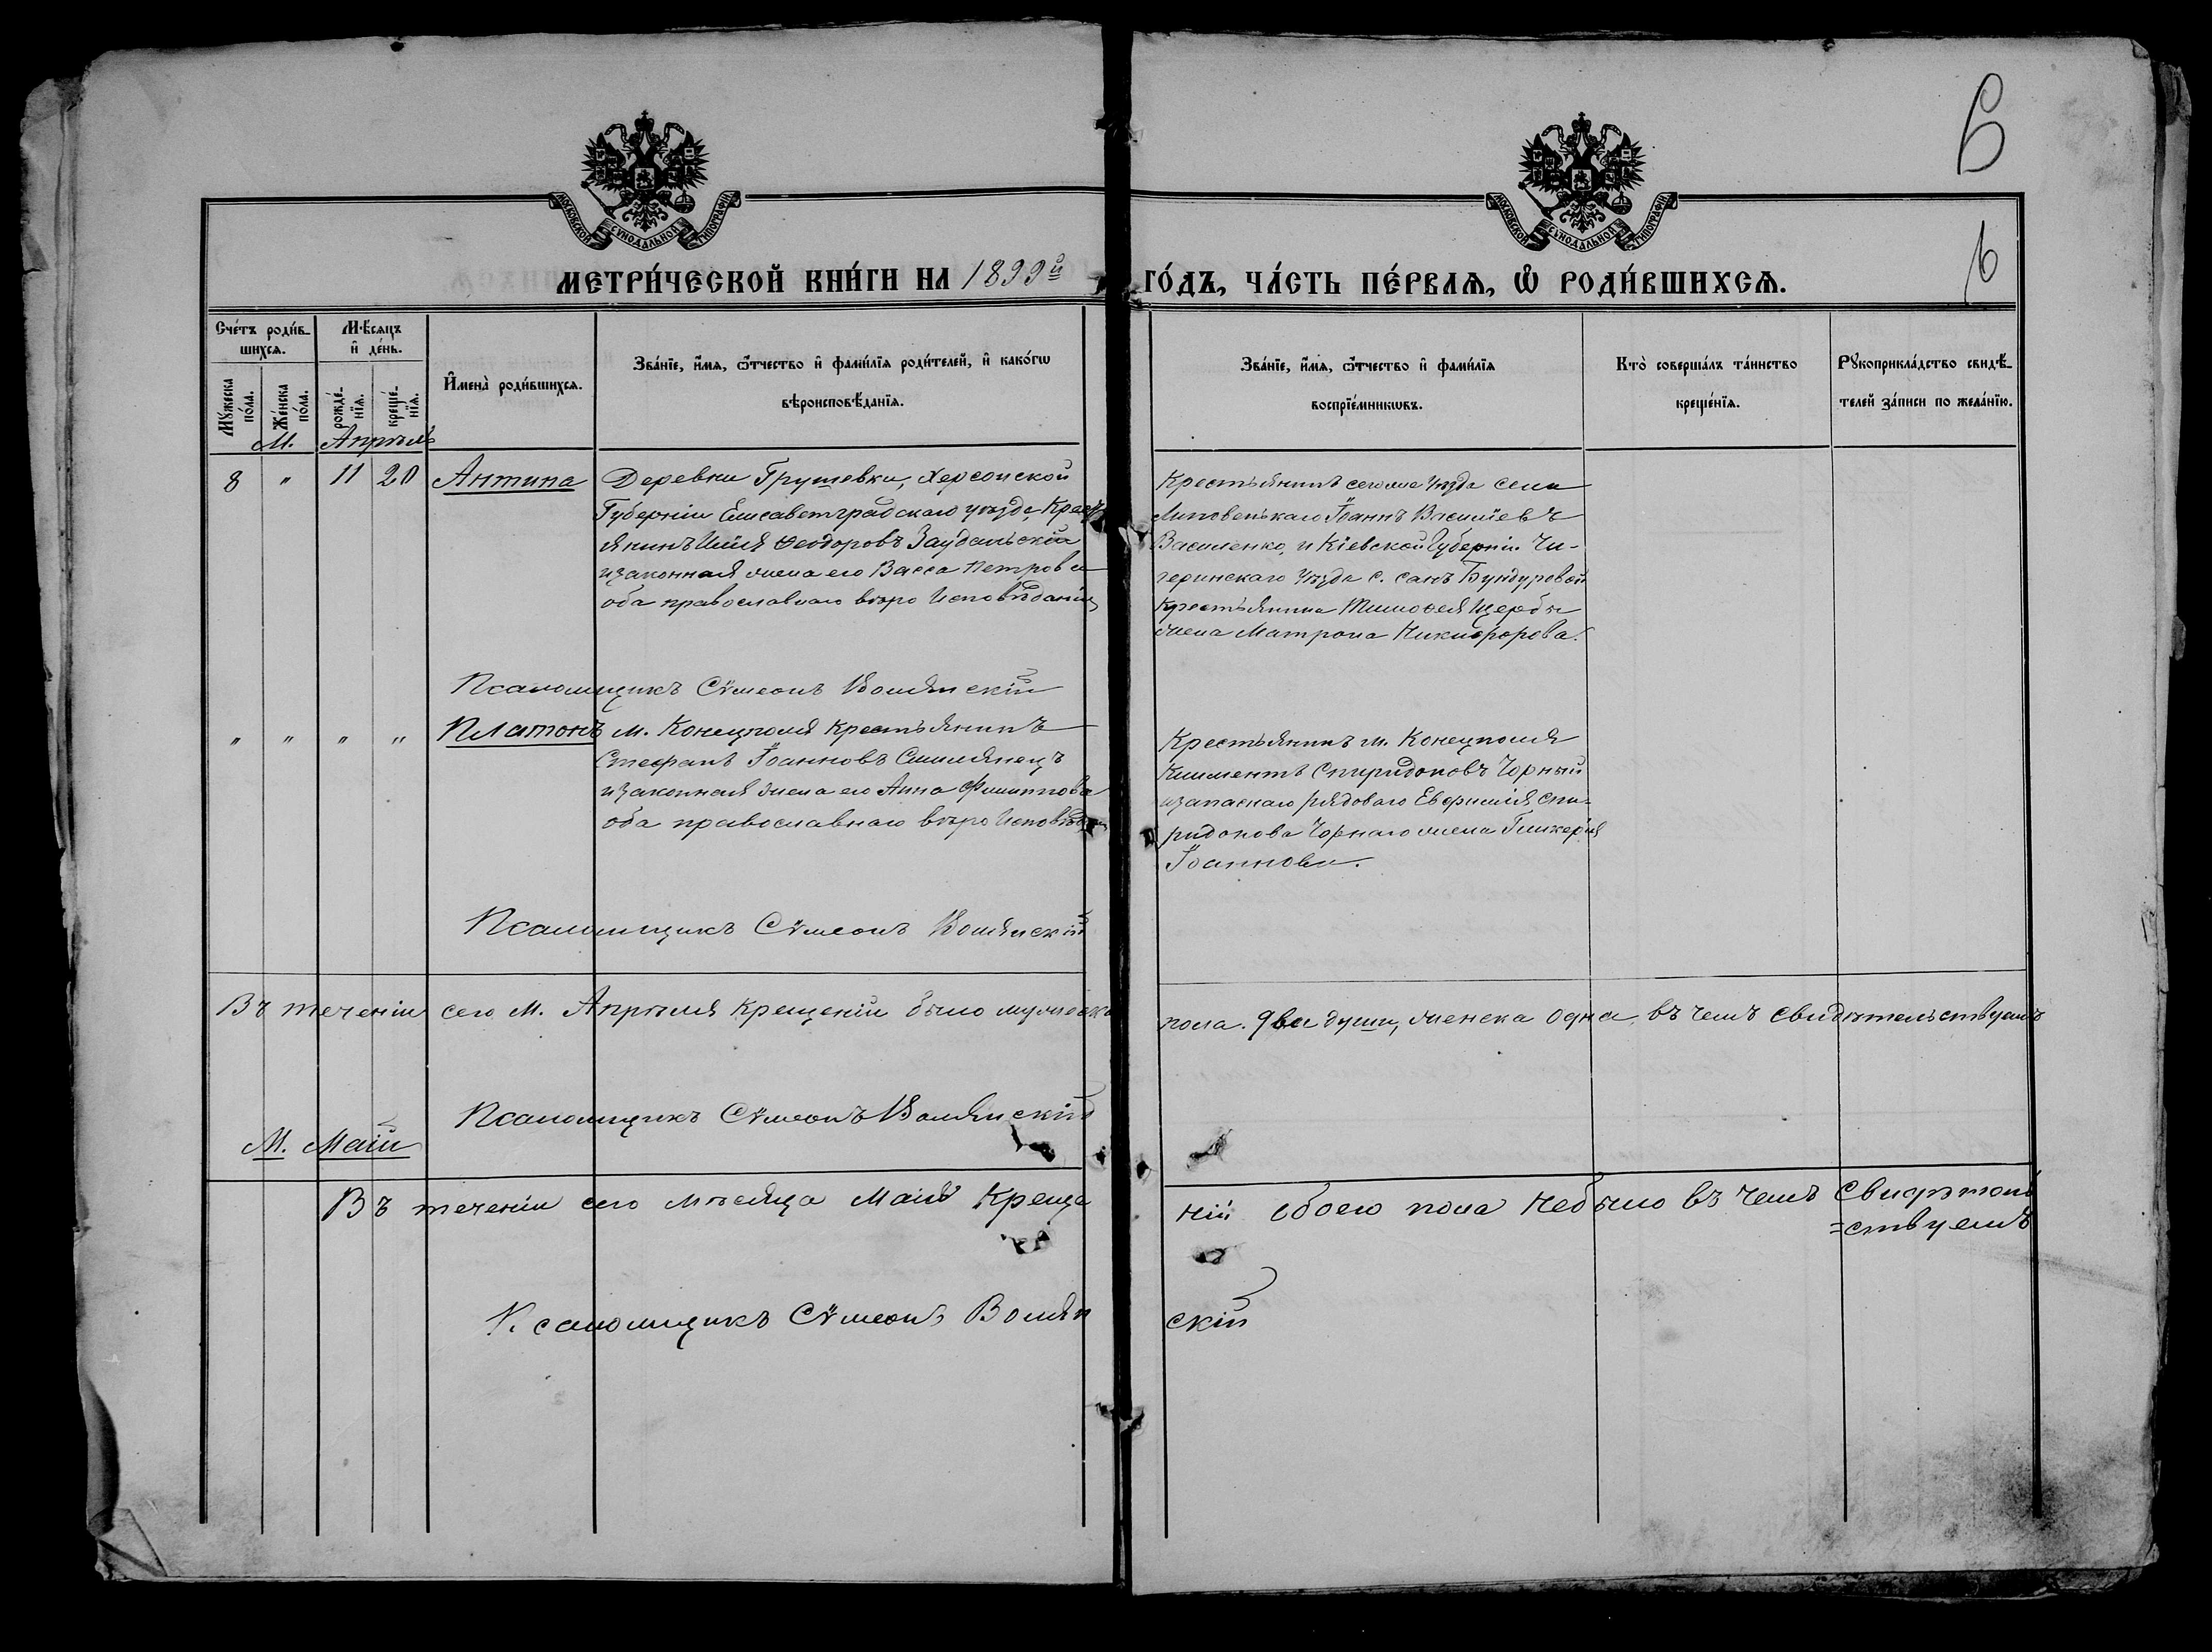 6
МОСКОВСКОЙ СУНОДАЛЬНОЙ ТИПОГРАФІИ
МОСКОВСКОЙ СУНОДАЛЬНОЙ ТИПОГРАФІИ
6
МЕТРИ́ЧЕСКОЙ КНИ́ГИ НА 1899й ГО́ДЪ, ЧА́СТЬ ПЕ́РВАѦ, Ѽ РОДИ́ВШИХСѦ.
Сче́тъ роди́в-
шихсѧ.
Мѹжеска по́ла.
Же́нска по́ла.
Мѣ́сѧцъ
и҆ де́нь.
рожде́-нїѧ.
креще́-нїѧ.
И҆мена̀ роди́вшихсѧ.
Зва́нїе, и҆́мѧ, ѻ҆́тчество и҆ фами́лїѧ роди́телей, и҆ како́гѡ
вѣроисповѣ́данїѧ.
Зва́нїе, и҆́мѧ, ѻ҆́тчество и҆ фами́лїѧ
воспрїе́мникѡвъ.
Кто̀ соверша́лъ та́инство
креще́нїѧ.
Рѹкоприкла́дство свидѣ́-
телей за́писи по жела́нїю.
М. Апрѣль
8 " 11 20 Антипа
Деревни Грушевки, Херсонской
Губерніи Елисаветградскаго уѣзда, Крест
янинъ Илія Ѳеодоровъ
изаконная жена его Васса Петрова
оба православнаго вѣро Исповѣданія
Крестьянинъ сегоже Уѣзда села
Липовенькаго Іоаннъ Василіевъ
Василенко, и Кіевской Губерніи Чи-
геринскаго Уѣзда с.
Крестьянина Тимоѳея Щербы
жена Матрона Никифорова.
Псаломщикъ Сѵмеонъ Волянскій
" " " " Платонъ
м. Конецполя Крестьянинъ
Стефанъ Іоанновъ Смилянецъ
изаконная жена его Анна Филиппова
оба православнаго вѣро Исповѣд
Крестьянинъ м. Конецполя
Климентъ Спиридоновъ Чорный
изапаснаго рядоваго Евфимія Спи-
ридонова Чорнаго жена Гликерія
Іоаннова.
Псаломщикъ Сѵмеонъ Волянскій
Въ теченіи сего М. Апрѣля Крещеній было мужеска пола две души, женска одна, въ чемъ свидѣтельствуемъ
Псаломщикъ Сѵмеонъ Волянскій
М. Маій
Въ теченіи сего мѣсяца Маія Креще
ній обоего пола Небыло въ чемъ Свидѣтель
=ствуемъ
Псаломщикъ Сѵмеонъ Волян
скій